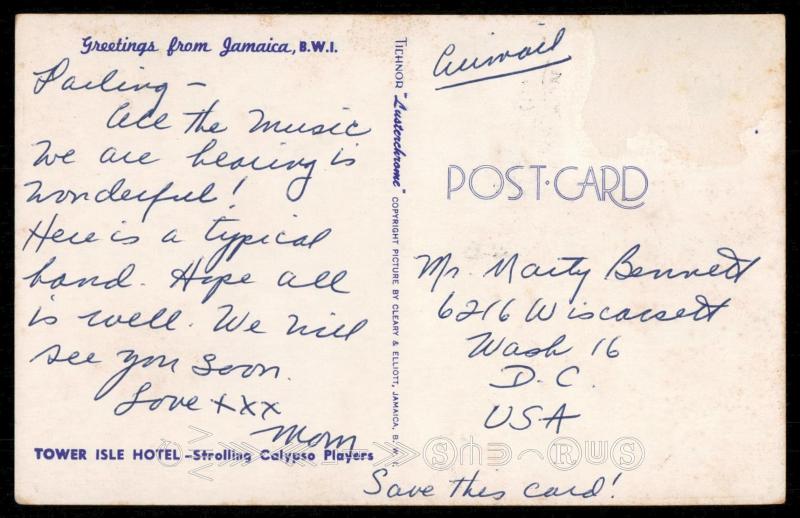 Greetings from Jamaica, B.W.I.
Darling –
All the music
we are hearing is
wonderful!
Here is a typical
band. Hope all
is well. We will
see you soon.
Love xxx
Mom
TOWER ISLE HOTEL – Strolling Calypso Players
TICHNOR "Lusterchrome" COPYRIGHT PICTURE BY CLEARY & ELLIOTT, JAMAICA, B. W. I.
Airmail
POST·CARD
Mr. Marty Bennett
6216 Wiscassett
Wash 16
D.C.
USA
Save this card!